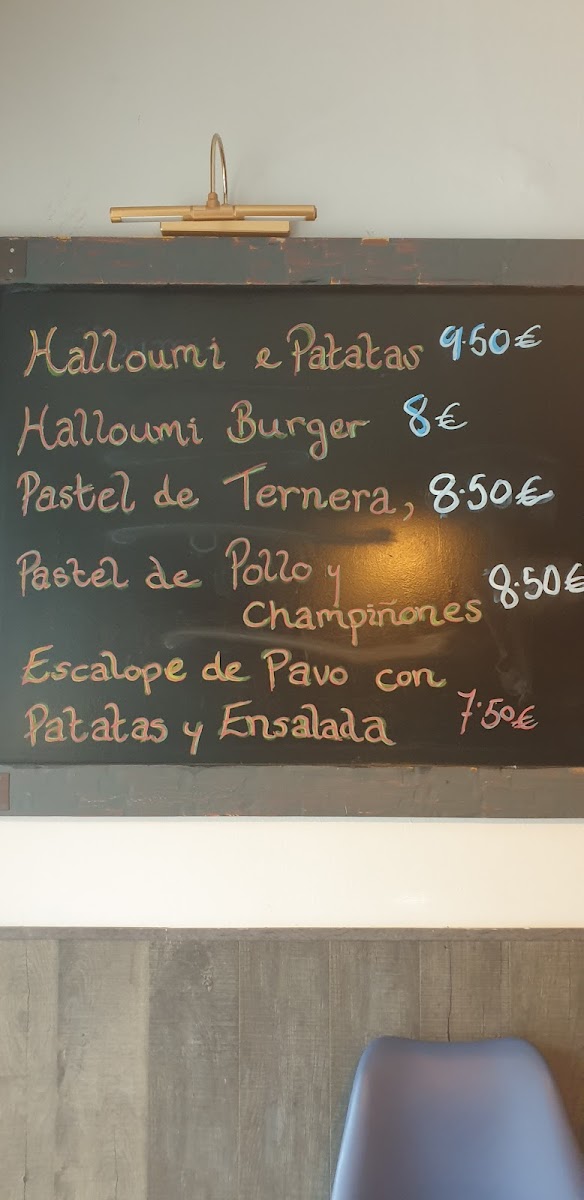 Halloumi e Patatas 9.50€
Halloumi Burger 8€
Pastel de Ternera, 8.50€
Pastel de Pollo y
Champiñones 8.50€
Escalope de Pavo con
Patatas y Ensalada 7.50€